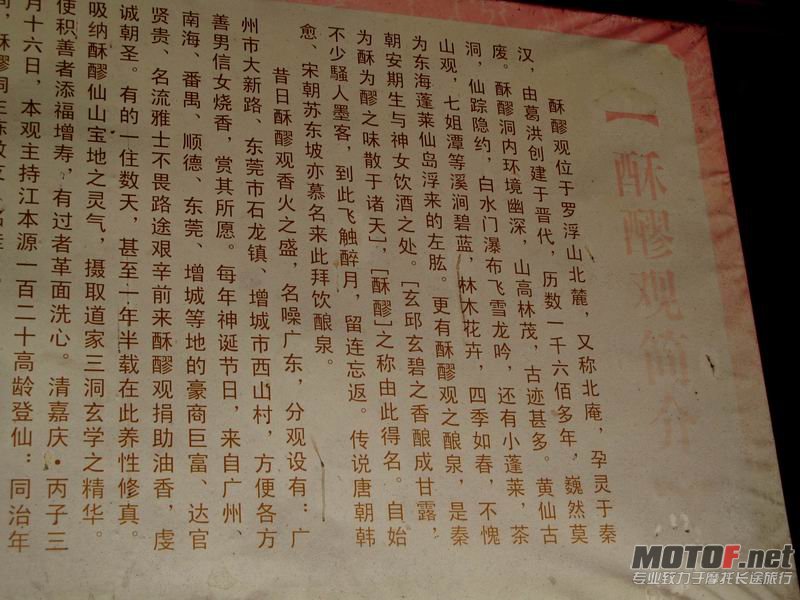 【酥醪观简介
酥醪观位于罗浮山北麓，又称北庵，孕灵于秦
汉，由葛洪创建于晋代，历数一千六佰多年，巍然莫
废。酥醪洞内环境幽深，山高林茂，古迹甚多。黄仙古
洞，仙踪隐约，白水门瀑布飞雪龙吟，还有小蓬莱，茶
山观，七姐潭等溪涧碧蓝，林木花卉，四季如春，不愧
为东海蓬莱仙岛浮来的左肱。更有酥醪观之酿泉，是秦
朝安期生与神女饮酒之处。[玄邱玄碧之香酿成甘露，
为酥为醪之味散于诸天]，[酥醪]之称由此得名。自始
不少骚人墨客，到此飞触醉月，留连忘返。传说唐朝韩
愈、宋朝苏东坡亦慕名来此拜饮酿泉。
昔日酥醪观香火之盛，名噪广东，分观设有：广
州市大新路、东莞市石龙镇、增城市西山村，方便各方
善男信女烧香，赏其所愿。每年神诞节日，来自广州、
南海、番禺、顺德、东莞、增城等地的豪商巨富、达官
贤贵、名流雅士不畏路途艰辛前来酥醪观捐助油香，虔
诚朝圣。有的一住数天，甚至一年半载在此养性修真。
吸纳酥醪仙山宝地之灵气，摄取道家三洞玄学之精华。
使积善者添福增寿，有过者革面洗心。清嘉庆·丙子三
月十六日，本观主持江本源一百二十高龄登仙：同治年
酥醪洞主陈教友
MOTOF.net
专业致力于摩托长途旅行